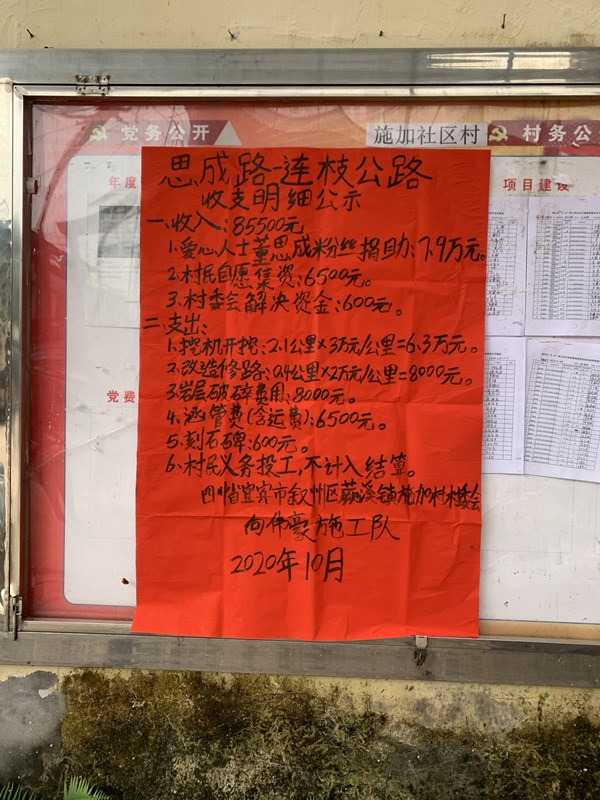 党务公开
施加社区村
村务公
年度
项目建设
党费
思成路-连枝公路
收支明细公示
一.收入:85500元
1.爱心人士董思成粉丝捐助:7.9万元。
2.村民自愿集资:6500元。
3.村委会解决资金:600元。
二.支出:
1.挖机开挖:2.1公里×3万元/公里=6.3万元。
2.改造修路:0.4公里×2万元/公里=8000元。
3.岩层破碎费用:8000元。
4.涵管费(含运费):6500元。
5.刻石碑:600元。
6.村民义务投工,不计入结算。
四川省宜宾市叙州区蕨溪镇施加村村委会
向伟豪施工队
2020年10月